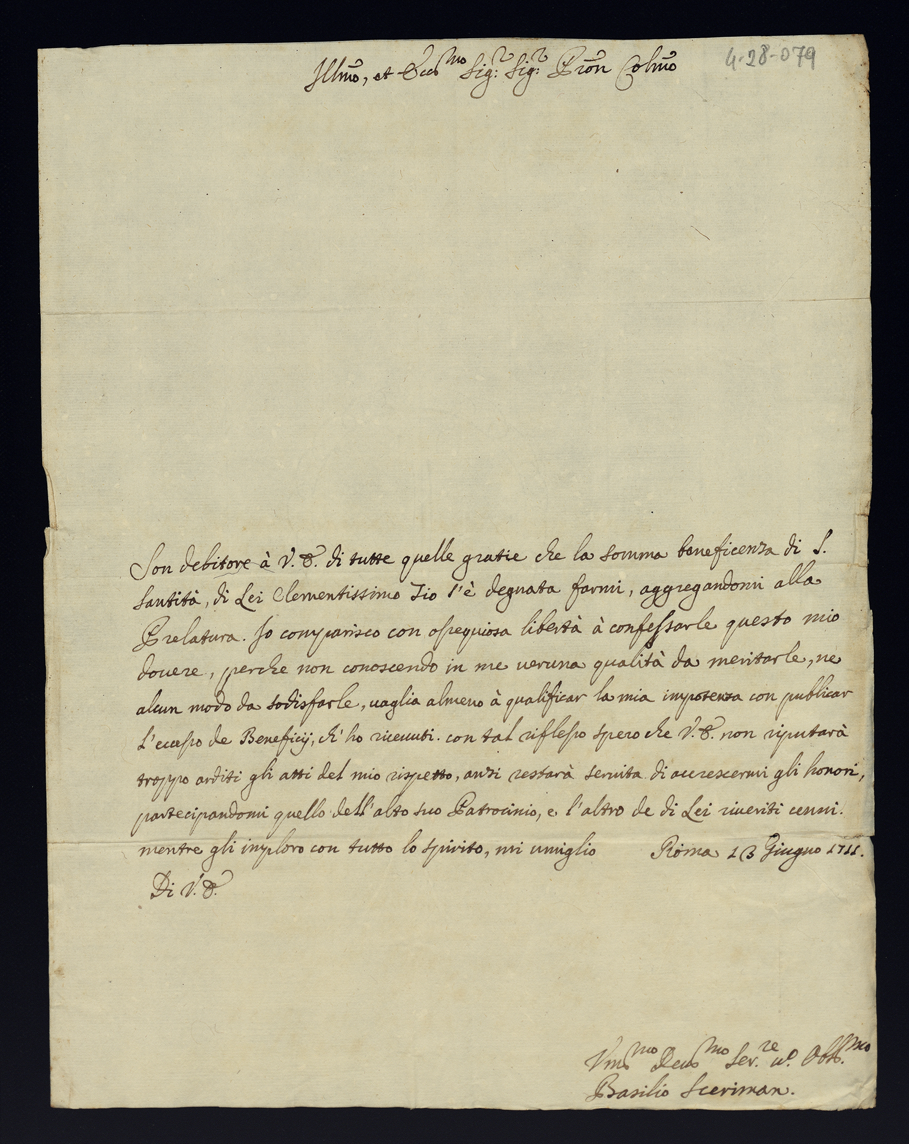 Illmõ, et Ecc.mo Sig:r Sig:r Pron̄ Colmõ
4-28-079
Son debitore à V. E. di tutte quelle gratie che la somma beneficenza di S.
Santità, di Lei Clementissimo Zio s'è degnata farmi, aggregandomi alla
Prelatura. Io comparisco con ossequiosa libertà à confessarle questo mio
douere, perche non conoscendo in me ueruna qualità da meritarle, ne
alcun modo da sodisfarle, uaglia almeno à qualificar la mia impotenza con publicar
l'eccesso de Beneficij, ch'ho riceuuti. con tal riflesso spero che V. E. non riputarà
troppo arditi gli atti del mio rispetto, anzi restarà seruita di accrescermi gli honori,
partecipandomi quello dell'alto suo Patrocinio, e l'altro de di Lei riueriti cenni.
mentre gli imploro con tutto lo spirito, mi umiglio Roma 13 Giugno 1711.
Di V. E.
Vm.mo Deu.mo Ser.re Obb.mo
Basilio Sceriman.